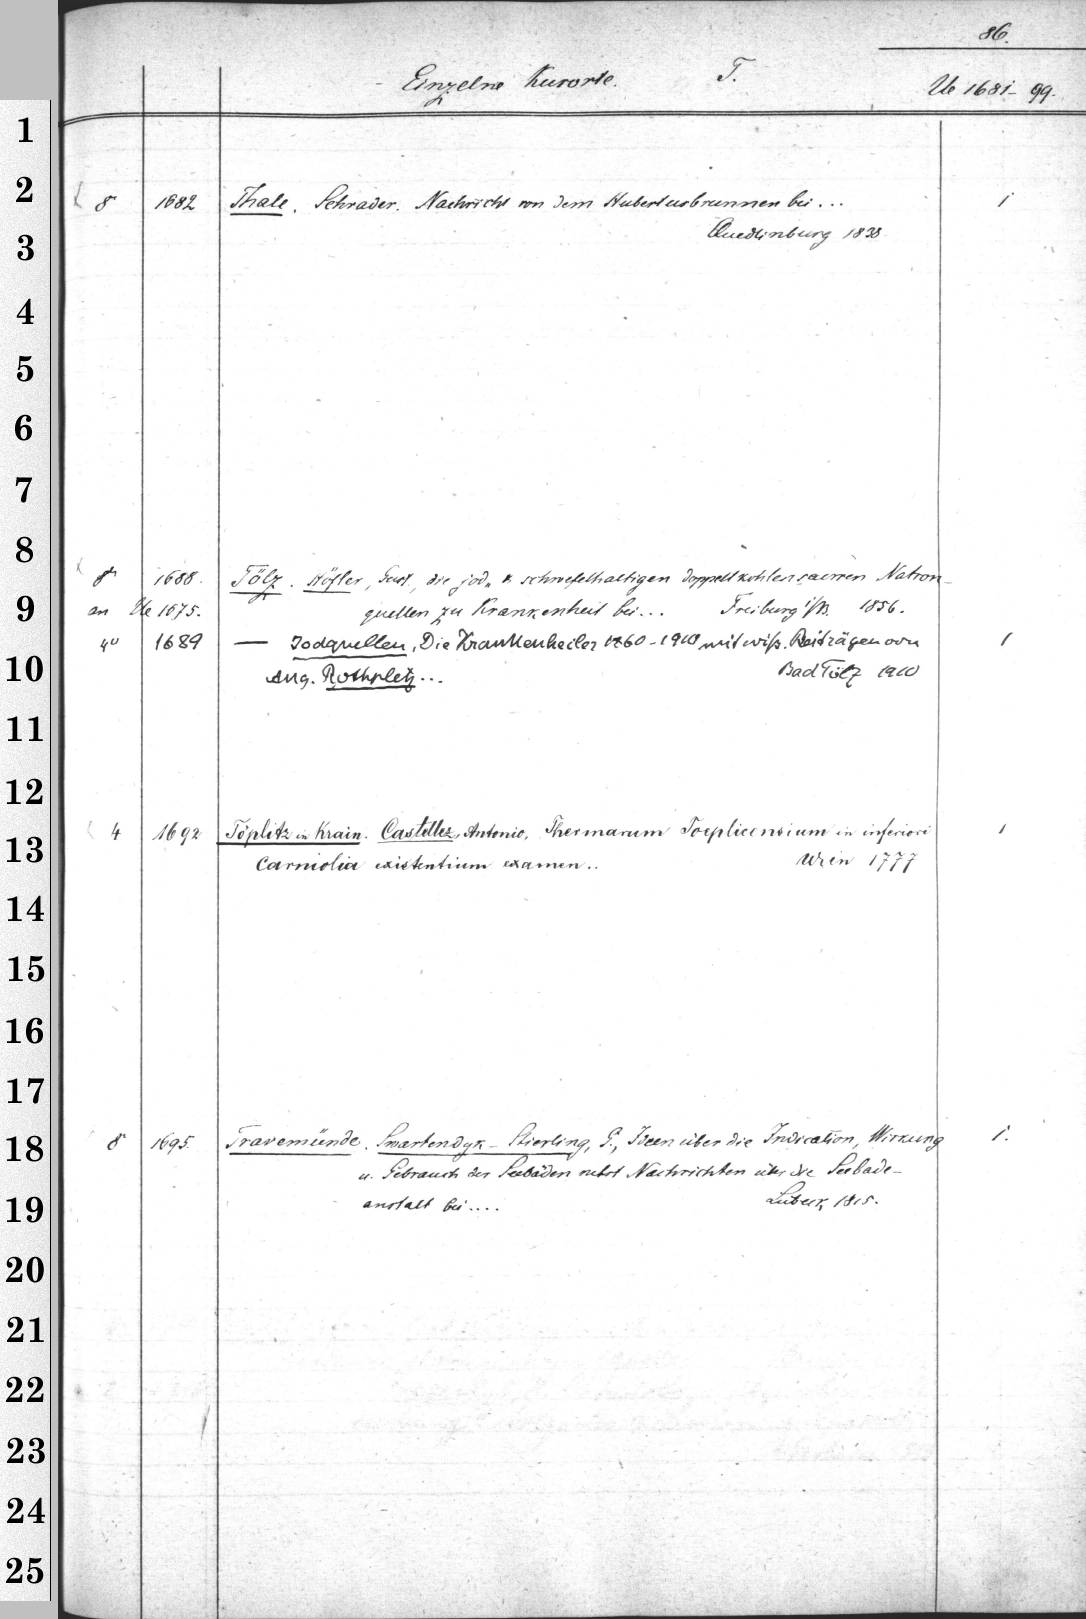 86.
Einzelne Kurorte. T. Ue 1681-99.
1
2
8° 1682 Thale. Schrader. Nachricht von dem Hubertusbrunnen bei... 1
Quedlinburg 1838
3
4
5
6
7
8
8° 1688. Tölz. Höfler, Gust, die jod- u. schwefelhaltigen doppeltkohlensauren Natron-
9
an Ue 1675. quellen zu Krankenheil bei... Freiburg i/B. 1856.
4° 1689 — Jodquellen, Die Krankenheiler 1860-1910 mit wiss. Beiträgen von 1
10
Aug. Rothpletz... Bad Tölz 1910
11
12
4 1692 Töplitz in Krain. Castellez, Antonio, Thermarum Toeplicensium in inferiori 1
13
Carniolia existentium examen.. Wien 1777
14
15
16
17
8° 1695. Travemünde. Swartendyk-Stierling, G., Ideen über die Indication, Wirkung 1.
18
u. Gebrauch der Seebäden nebst Nachrichten über die Seebade-
19
anstalt bei.... Lübeck, 1815.
20
21
22
23
24
25